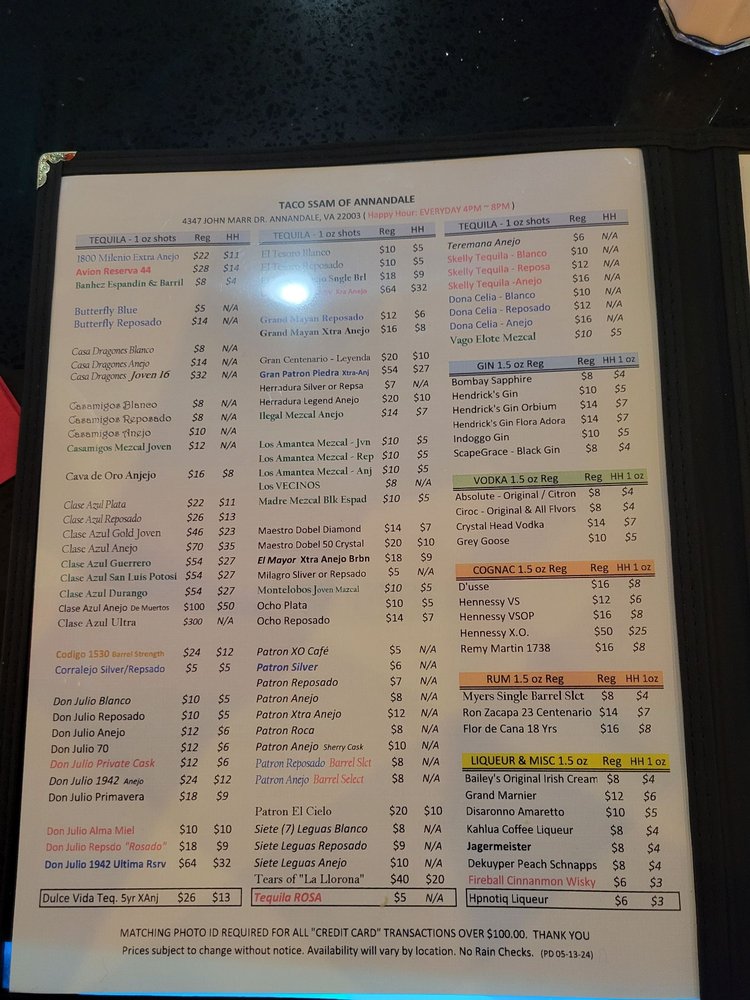 TACO SSAM OF ANNANDALE
4347 JOHN MARR DR. ANNANDALE, VA 22003 ( Happy Hour: EVERYDAY 4PM ~ 8PM )
TEQUILA - 1 oz shots Reg HH
1800 Milenio Extra Anejo $22 $11
Avion Reserva 44 $28 $14
Banhez Espandin & Barril $8 $4
Butterfly Blue $5 N/A
Butterfly Reposado $14 N/A
Casa Dragones Blanco $8 N/A
Casa Dragones Anejo $14 N/A
Casa Dragones Joven 16 $32 N/A
Casamigos Blanco $8 N/A
Casamigos Reposado $8 N/A
Casamigos Anejo $10 N/A
Casamigos Mezcal Joven $12 N/A
Cava de Oro Anjejo $16 $8
Clase Azul Plata $22 $11
Clase Azul Reposado $26 $13
Clase Azul Gold Joven $46 $23
Clase Azul Anejo $70 $35
Clase Azul Guerrero $54 $27
Clase Azul San Luis Potosi $54 $27
Clase Azul Durango $54 $27
Clase Azul Anejo De Muertos $100 $50
Clase Azul Ultra $300 N/A
Codigo 1530 Barrel Strength $24 $12
Corralejo Silver/Repsado $5 $5
Don Julio Blanco $10 $5
Don Julio Reposado $10 $5
Don Julio Anejo $12 $6
Don Julio 70 $12 $6
Don Julio Private Cask $12 $6
Don Julio 1942 Anejo $24 $12
Don Julio Primavera $18 $9
Don Julio Alma Miel $10 $10
Don Julio Repsdo "Rosado" $18 $9
Don Julio 1942 Ultima Rsrv $64 $32
Dulce Vida Teq. 5yr XAnj $26 $13
TEQUILA - 1 oz shots Reg HH
El Tesoro Blanco $10 $5
El Tesoro Reposado $10 $5
Sngle Brl $18 $9
Xra Anejo $64 $32
Grand Mayan Reposado $12 $6
Grand Mayan Xtra Anejo $16 $8
Gran Centenario - Leyenda $20 $10
Gran Patron Piedra Xtra-Anj $54 $27
Herradura Silver or Repsa $7 N/A
Herradura Legend Anejo $20 $10
Ilegal Mezcal Anejo $14 $7
Los Amantea Mezcal - Jvn $10 $5
Los Amantea Mezcal - Rep $10 $5
Los Amantea Mezcal - Anj $10 $5
Los VECINOS $8 N/A
Madre Mezcal Blk Espad $10 $5
Maestro Dobel Diamond $14 $7
Maestro Dobel 50 Crystal $20 $10
El Mayor Xtra Anejo Brbn $18 $9
Milagro Sliver or Repsado $5 N/A
Montelobos Joven Mazcal $10 $5
Ocho Plata $10 $5
Ocho Reposado $14 $7
Patron XO Café $5 N/A
Patron Silver $6 N/A
Patron Reposado $7 N/A
Patron Anejo $8 N/A
Patron Xtra Anejo $12 N/A
Patron Roca $8 N/A
Patron Anejo Sherry Cask $10 N/A
Patron Reposado Barrel Slct $8 N/A
Patron Anejo Barrel Select $8 N/A
Patron El Cielo $20 $10
Siete (7) Leguas Blanco $8 N/A
Siete Leguas Reposado $9 N/A
Siete Leguas Anejo $10 N/A
Tears of "La Llorona" $40 $20
Tequila ROSA $5 N/A
TEQUILA - 1 oz shots Reg HH
Teremana Anejo $6 N/A
Skelly Tequila - Blanco $10 N/A
Skelly Tequila - Reposa $12 N/A
Skelly Tequila -Anejo $16 N/A
Dona Celia - Blanco $10 N/A
Dona Celia - Reposado $12 N/A
Dona Celia - Anejo $16 N/A
Vago Elote Mezcal $10 $5
GIN 1.5 oz Reg Reg HH 1 oz
Bombay Sapphire $8 $4
Hendrick's Gin $10 $5
Hendrick's Gin Orbium $14 $7
Hendrick's Gin Flora Adora $14 $7
Indoggo Gin $10 $5
ScapeGrace - Black Gin $8 $4
VODKA 1.5 oz Reg Reg HH 1 oz
Absolute - Original / Citron $8 $4
Ciroc - Original & All Flvors $8 $4
Crystal Head Vodka $14 $7
Grey Goose $10 $5
COGNAC 1.5 oz Reg Reg HH 1 oz
D'usse $16 $8
Hennessy VS $12 $6
Hennessy VSOP $16 $8
Hennessy X.O. $50 $25
Remy Martin 1738 $16 $8
RUM 1.5 oz Reg Reg HH 1oz
Myers Single Barrel Slct $8 $4
Ron Zacapa 23 Centenario $14 $7
Flor de Cana 18 Yrs $16 $8
LIQUEUR & MISC 1.5 oz Reg HH 1 oz
Bailey's Original Irish Cream $8 $4
Grand Marnier $12 $6
Disaronno Amaretto $10 $5
Kahlua Coffee Liqueur $8 $4
Jagermeister $8 $4
Dekuyper Peach Schnapps $8 $4
Fireball Cinnanmon Wisky $6 $3
Hpnotiq Liqueur $6 $3
MATCHING PHOTO ID REQUIRED FOR ALL "CREDIT CARD" TRANSACTIONS OVER $100.00. THANK YOU
Prices subject to change without notice. Availability will vary by location. No Rain Checks. (PD 05-13-24)